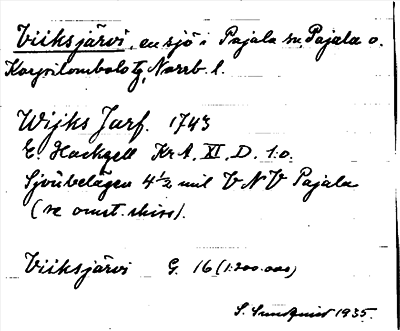 Viiksjärvi, en sjö i Pajala sn, Pajala o.
Korpilombolo tg, Norrb. l.
Wijks Jarf. 1743
E. Hackzell KrA, XI, D. 1:o.
Sjön belägen 4 1/2 mil VNV Pajala
(se omst. skiss).
Viiksjärvi G. 16 (1:200.000)
S. Sundquist 1935.